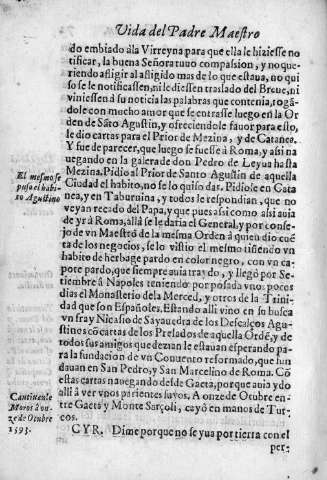 Vida del Padre Maestro
do embiado àla Virreyna para que ella le hiziesse no
tificar, la buena Señora tuuo compassion, y no que-
riendo afligir al afligido mas de lo que estaua, no qui
so se le notificassen, ni le diessen traslado del Breue, ni
viniessen à su noticia las palabras que contenia, rogã-
dole con mucho amor que se entrasse luego en la Or
den de Sãto Agustin, y ofreciendole fauor para esto,
le dio cartas para el Prior de Mezina, y de Catanea.
Y fue de parecer, que luego se fuesse à Roma, y assi na
uegando en la galera de don Pedro de Leyua hasta
Mezina, Pidio al Prior de Santo Agustin de aquella
Ciudad el habito, no se lo quiso dar. Pidiole en Cata
nea, y en Taburnina, y todos le respondian, que no
veyan recado del Papa, y que pues assi como assi auia
de yr à Roma, allà se le daria el General, y por conse-
jo de vn Maestro de la mesma Orden à quien dio cuẽ
ta de los negocios, se lo vistio el mesmo tiñendo vn
habito de herbage pardo en color negro, con vn ca-
pote pardo, que siempre auia traydo, y llegò por Se-
tiembre à Napoles teniendo por posada vnos pocos
dias el Monasterio dela Merced, y otros de la Trini-
dad que son Españoles. Estando alli vino en su busca
vn fray Nicasio de Sayauedra de los Descalços Agu-
stinos cõ cartas de los Prelados de aquella Ordẽ, y de
todos sus amigos que dezian le estauan esperando pa-
ra la fundacion de vn Conuento reformado, que fun
dauan en San Pedro, y San Marcelino de Roma. Cõ
estas cartas nauegando desde Gaeta, porque auia ydo
allà à ver vnos parientes suyos. A onze de Octubre en-
tre Gaeta y Monte Sarçoli, cayò en manos de Tur-
cos.
CYR. Dime porque no se yua por tierra con el
per-
El mesmo se
puso el habi-
to Agustino
Cautiuenle
Moros à on-
ze de Otubre
1593.